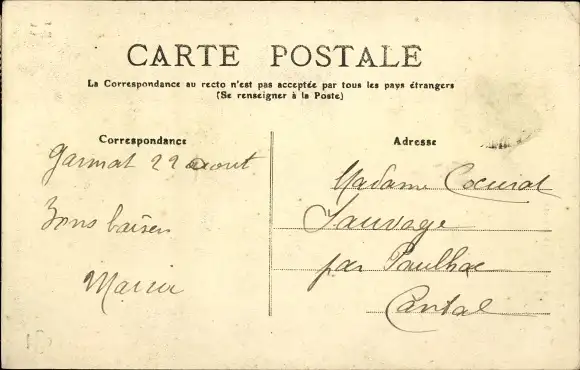 CARTE POSTALE
La Correspondance au recto n'est pas acceptée par tous les pays étrangers
(Se renseigner à la Poste)
Correspondance
22 aout
Bons baisers
Adresse
Madame
Sauvage
par Paulhac
Cantal